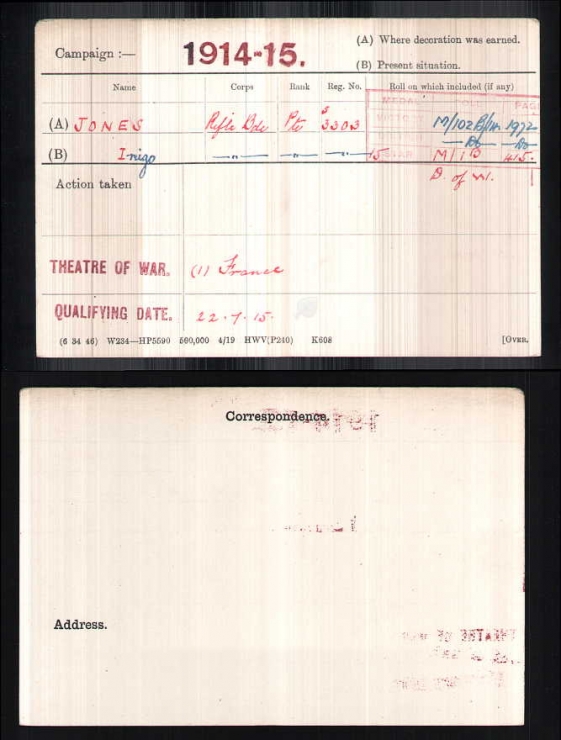 Campaign :— 1914-15. (A) Where decoration was earned.
(B) Present situation.
Name Corps Rank Reg. No. Roll on which included (if any)
MEDAL ROLL PAGE
(A) JONES Rifle Bde Pte S 3303 M/102 1972
— Do — — Do —
(B) Inigo —〃— —〃— —〃— 15 STAR M/1B 415.
D. of W.
Action taken
THEATRE OF WAR. (1) France
QUALIFYING DATE. 22.7.15.
(6 34 46) W234—HP5590 500,000 4/19 HWV(P240) K608 [OVER.
Correspondence.
Address.